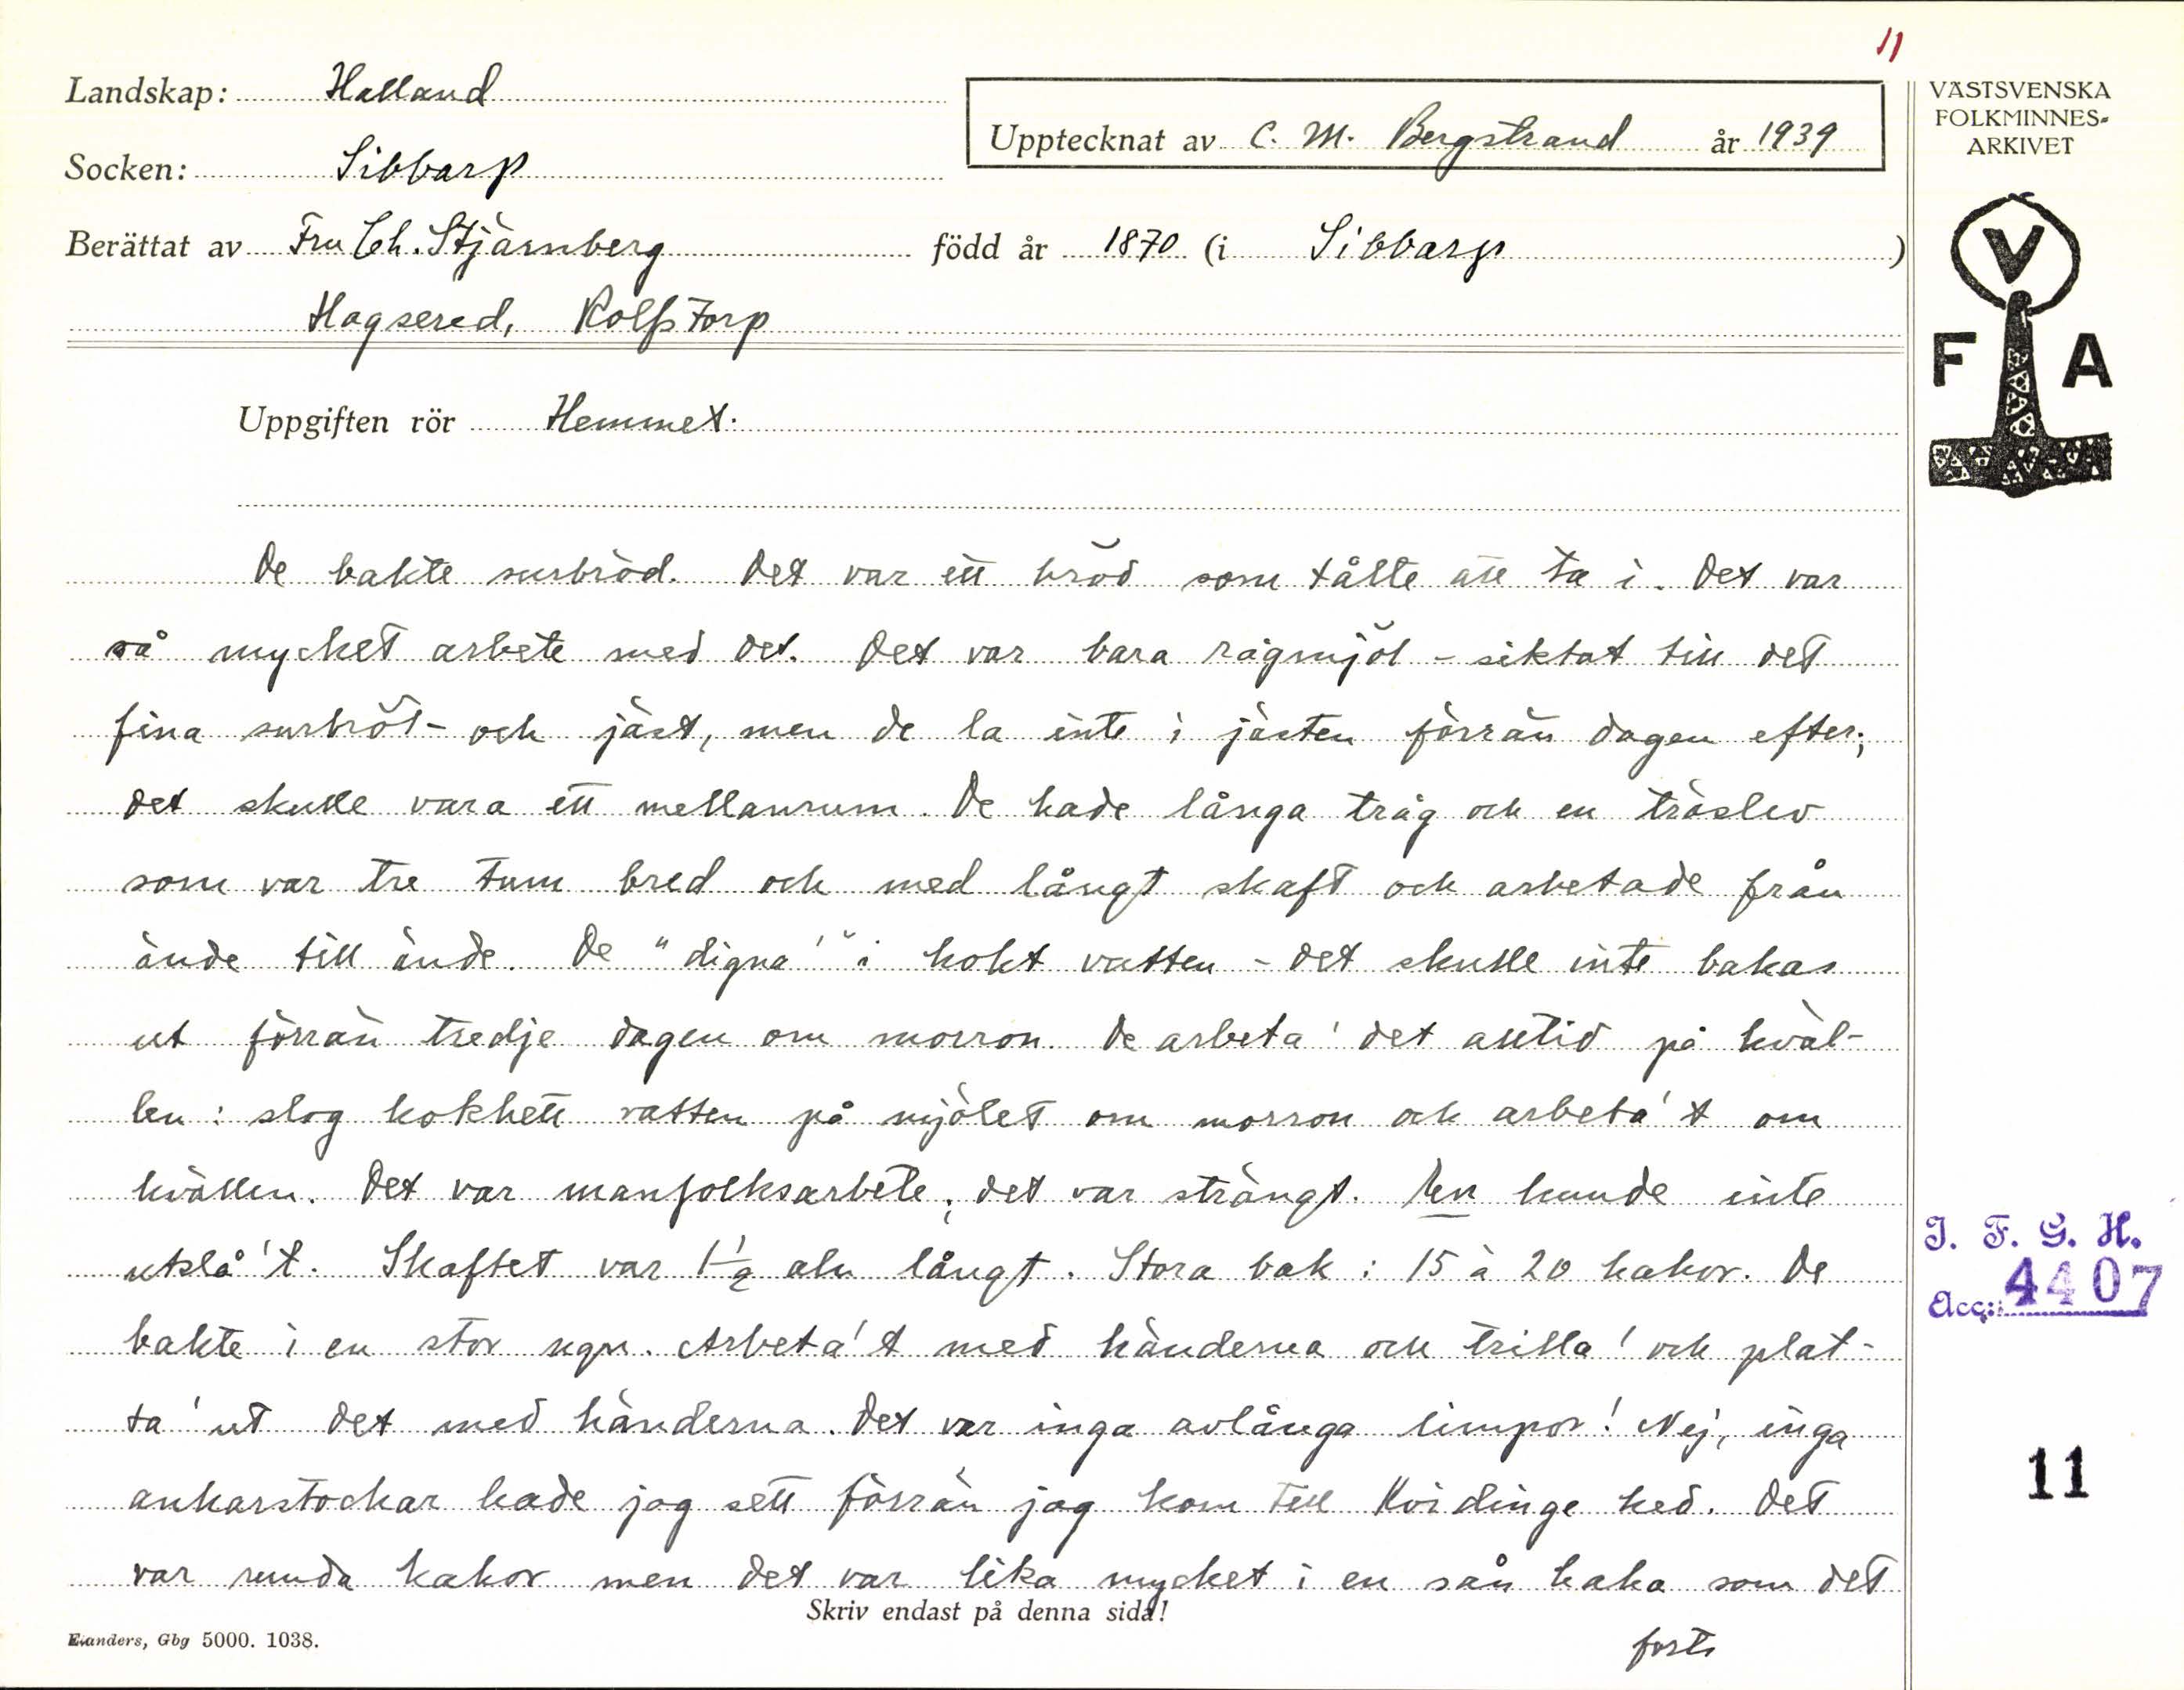 11
Landskap: Halland
Upptecknat av C. M. Bergstrand år 1939
Socken: Sibbarp
Berättat av Fru Ch. Stjärnberg född år 1870 (i Sibbarp)
Hagsered, Rolfstorp
Uppgiften rör Hemmet.
De bakte surbröd. Det var ett bröd som tålte att ta i. Det var
så mycket arbete med det. Det var bara rågmjöl - siktat till det
fina surbröt - och jäst, men de la inte i jästen förrän dagen efter;
det skulle vara ett mellanrum. De hade långa tråg och en träslev
som var tre tum bred och med långt skaft och arbetade från
ände till ände. De "digna'" i kokt vatten - det skulle inte bakas
ut förrän tredje dagen om morron. De arbeta' det alltid på kväl-
len: slog kokhett vatten på mjölet om morron och arbeta't om
kvällen. Det var manfolksarbete; det var strängt. En kunde inte
utslå't. Skaftet var 1 1/2 aln långt. Stora bak: 15 à 20 kakor. De
bakte i en stor ugn. Arbeta't med händerna och trilla' och plat-
ta' ut det med händerna. Det var inga avlånga limpor! Nej, inga
ankarstockar hade jag sett förrän jag kom till Kvidinge hed. Det
var runda kakor men det var lika mycket i en sån kaka som det
Skriv endast på denna sida!
forts
Elanders, Gbg 5000. 1038.
VÄSTSVENSKA
FOLKMINNES-
ARKIVET
V
F A
I. F. G. H.
Acc.: 4407
11